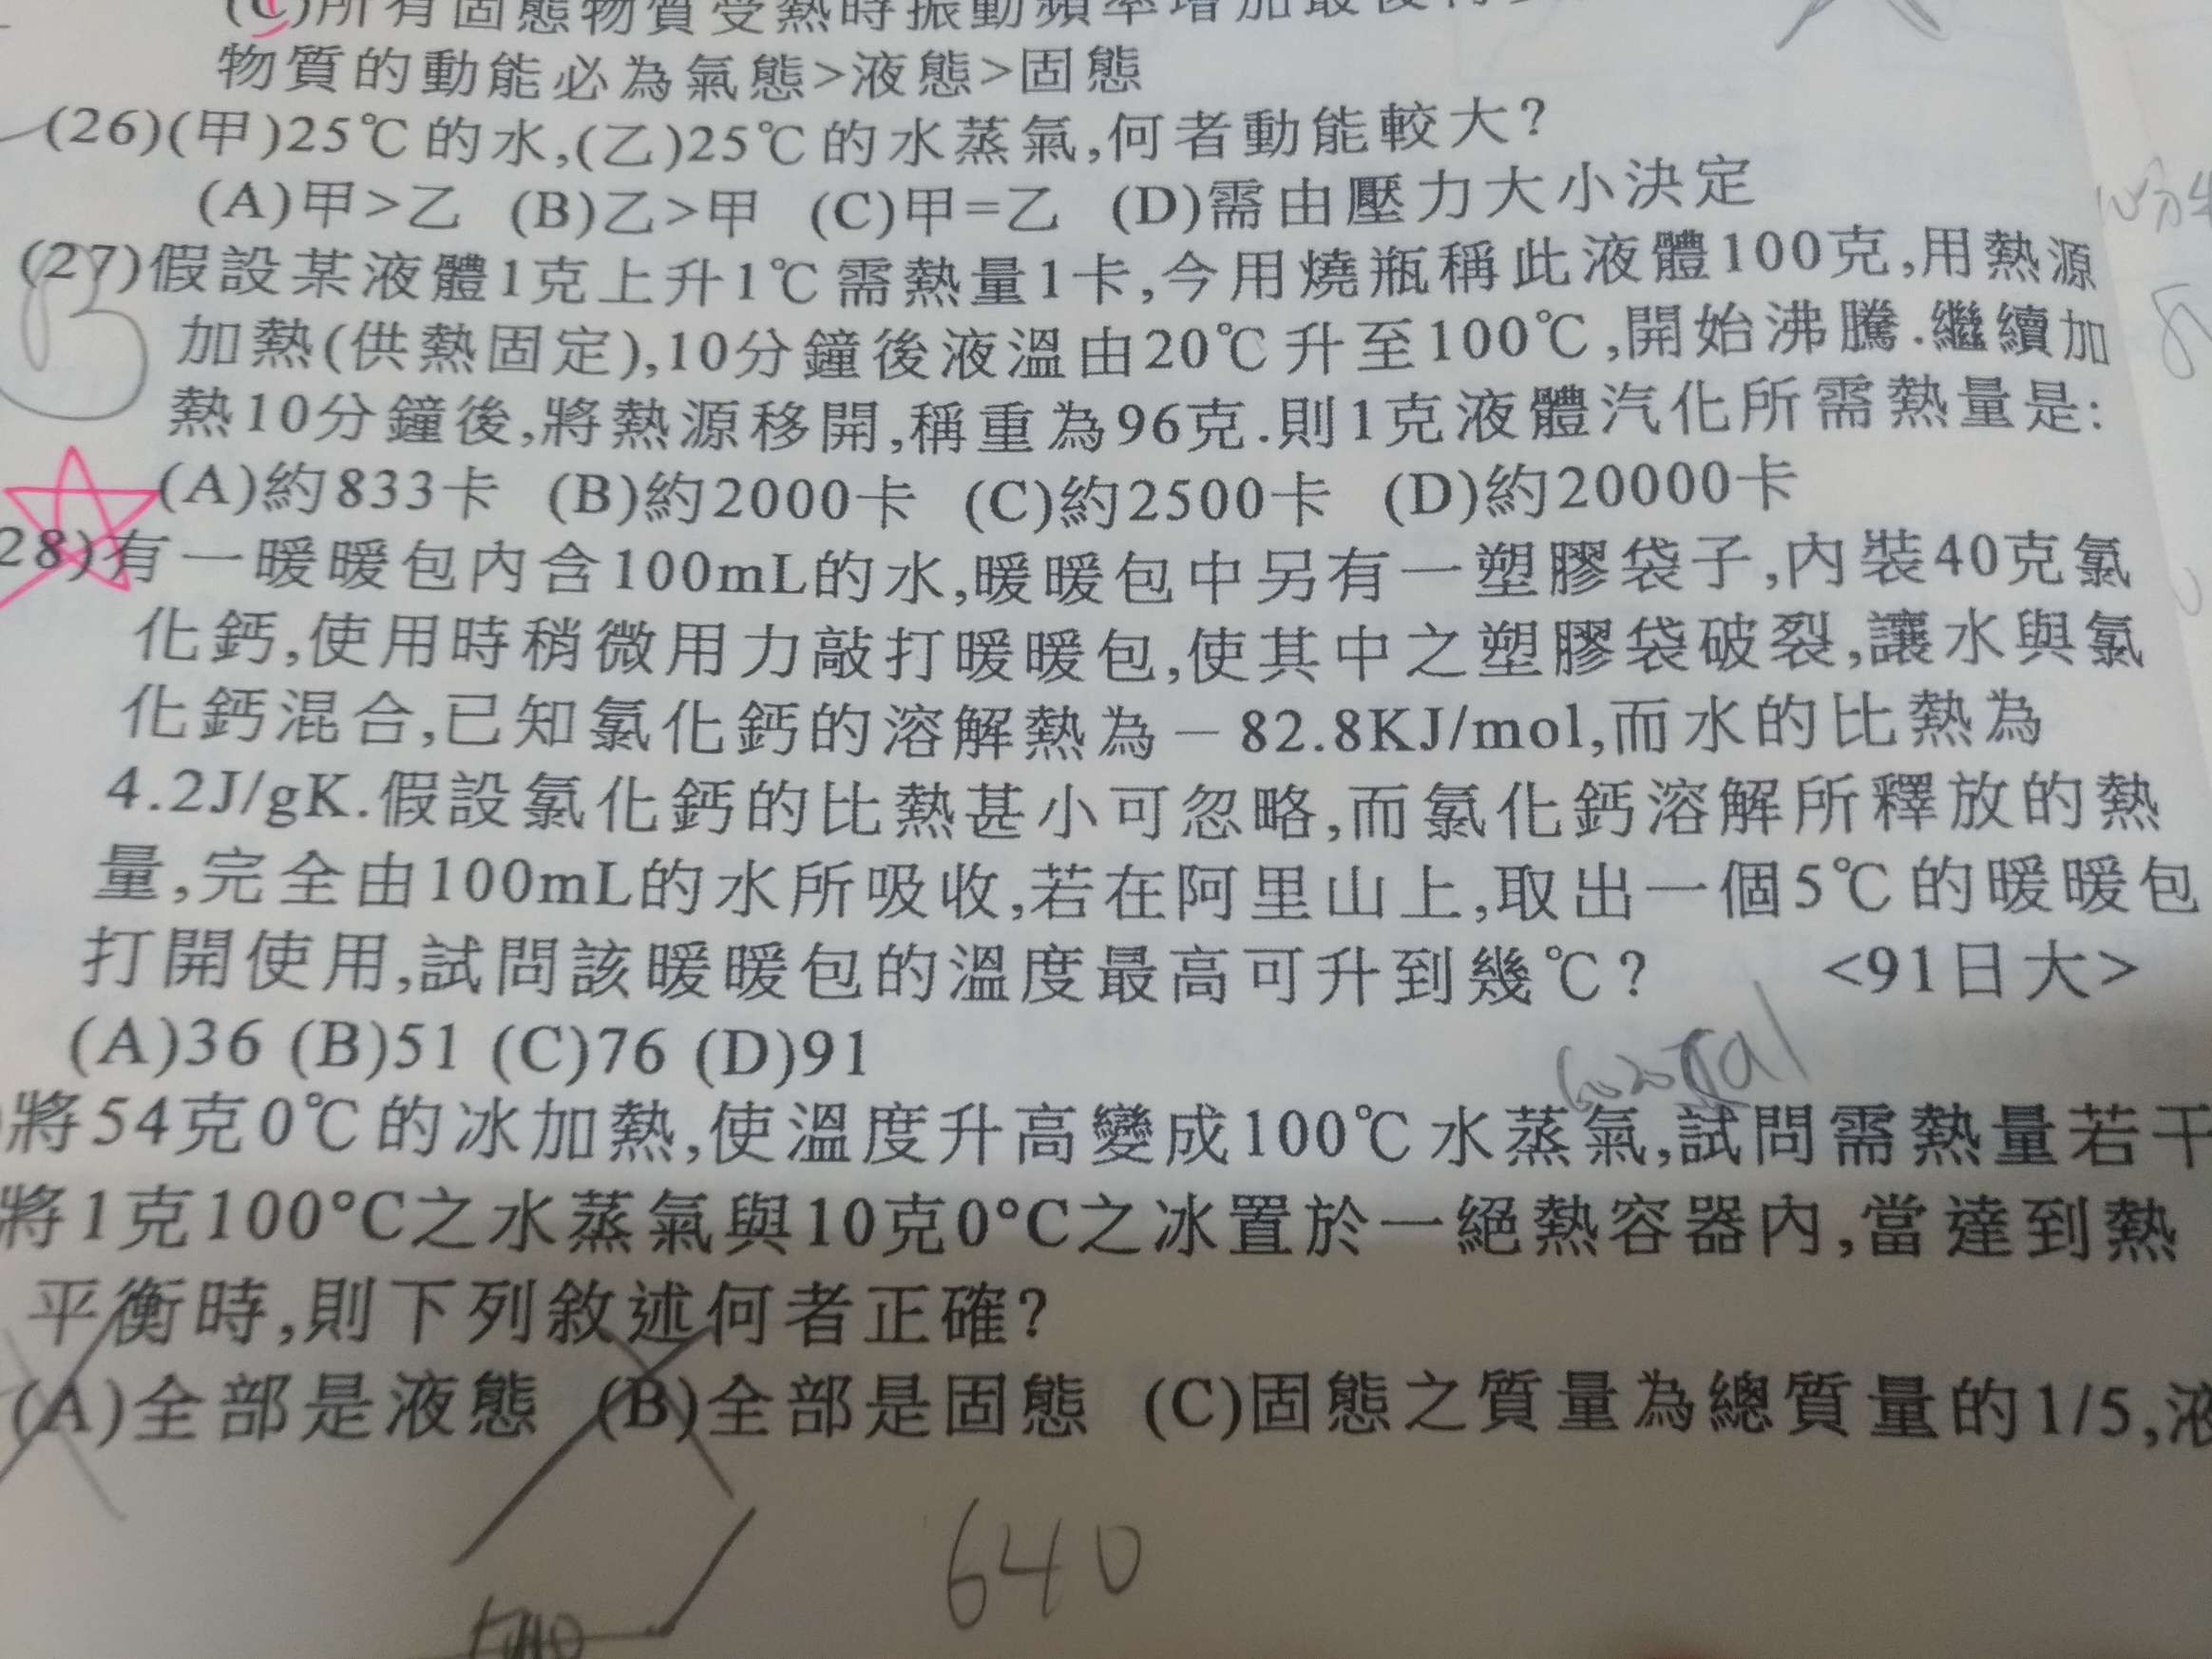 (C)所有固態物質受熱時振動頻率增加最後
物質的動能必為氣態>液態>固態
(26)(甲)25℃的水,(乙)25℃的水蒸氣,何者動能較大?
(A)甲>乙 (B)乙>甲 (C)甲=乙 (D)需由壓力大小決定
(27)假設某液體1克上升1℃需熱量1卡,今用燒瓶稱此液體100克,用熱源
加熱(供熱固定),10分鐘後液溫由20℃升至100℃,開始沸騰.繼續加
熱10分鐘後,將熱源移開,稱重為96克.則1克液體汽化所需熱量是:
(A)約833卡 (B)約2000卡 (C)約2500卡 (D)約20000卡
28)有一暖暖包內含100mL的水,暖暖包中另有一塑膠袋子,內裝40克氯
化鈣,使用時稍微用力敲打暖暖包,使其中之塑膠袋破裂,讓水與氯
化鈣混合,已知氯化鈣的溶解熱為－82.8KJ/mol,而水的比熱為
4.2J/gK.假設氯化鈣的比熱甚小可忽略,而氯化鈣溶解所釋放的熱
量,完全由100mL的水所吸收,若在阿里山上,取出一個5℃的暖暖包
打開使用,試問該暖暖包的溫度最高可升到幾℃? <91日大>
(A)36 (B)51 (C)76 (D)91
)將54克0℃的冰加熱,使溫度升高變成100℃水蒸氣,試問需熱量若干
將1克100°C之水蒸氣與10克0°C之冰置於一絕熱容器內,當達到熱
平衡時,則下列敘述何者正確?
(A)全部是液態 (B)全部是固態 (C)固態之質量為總質量的1/5,液
640